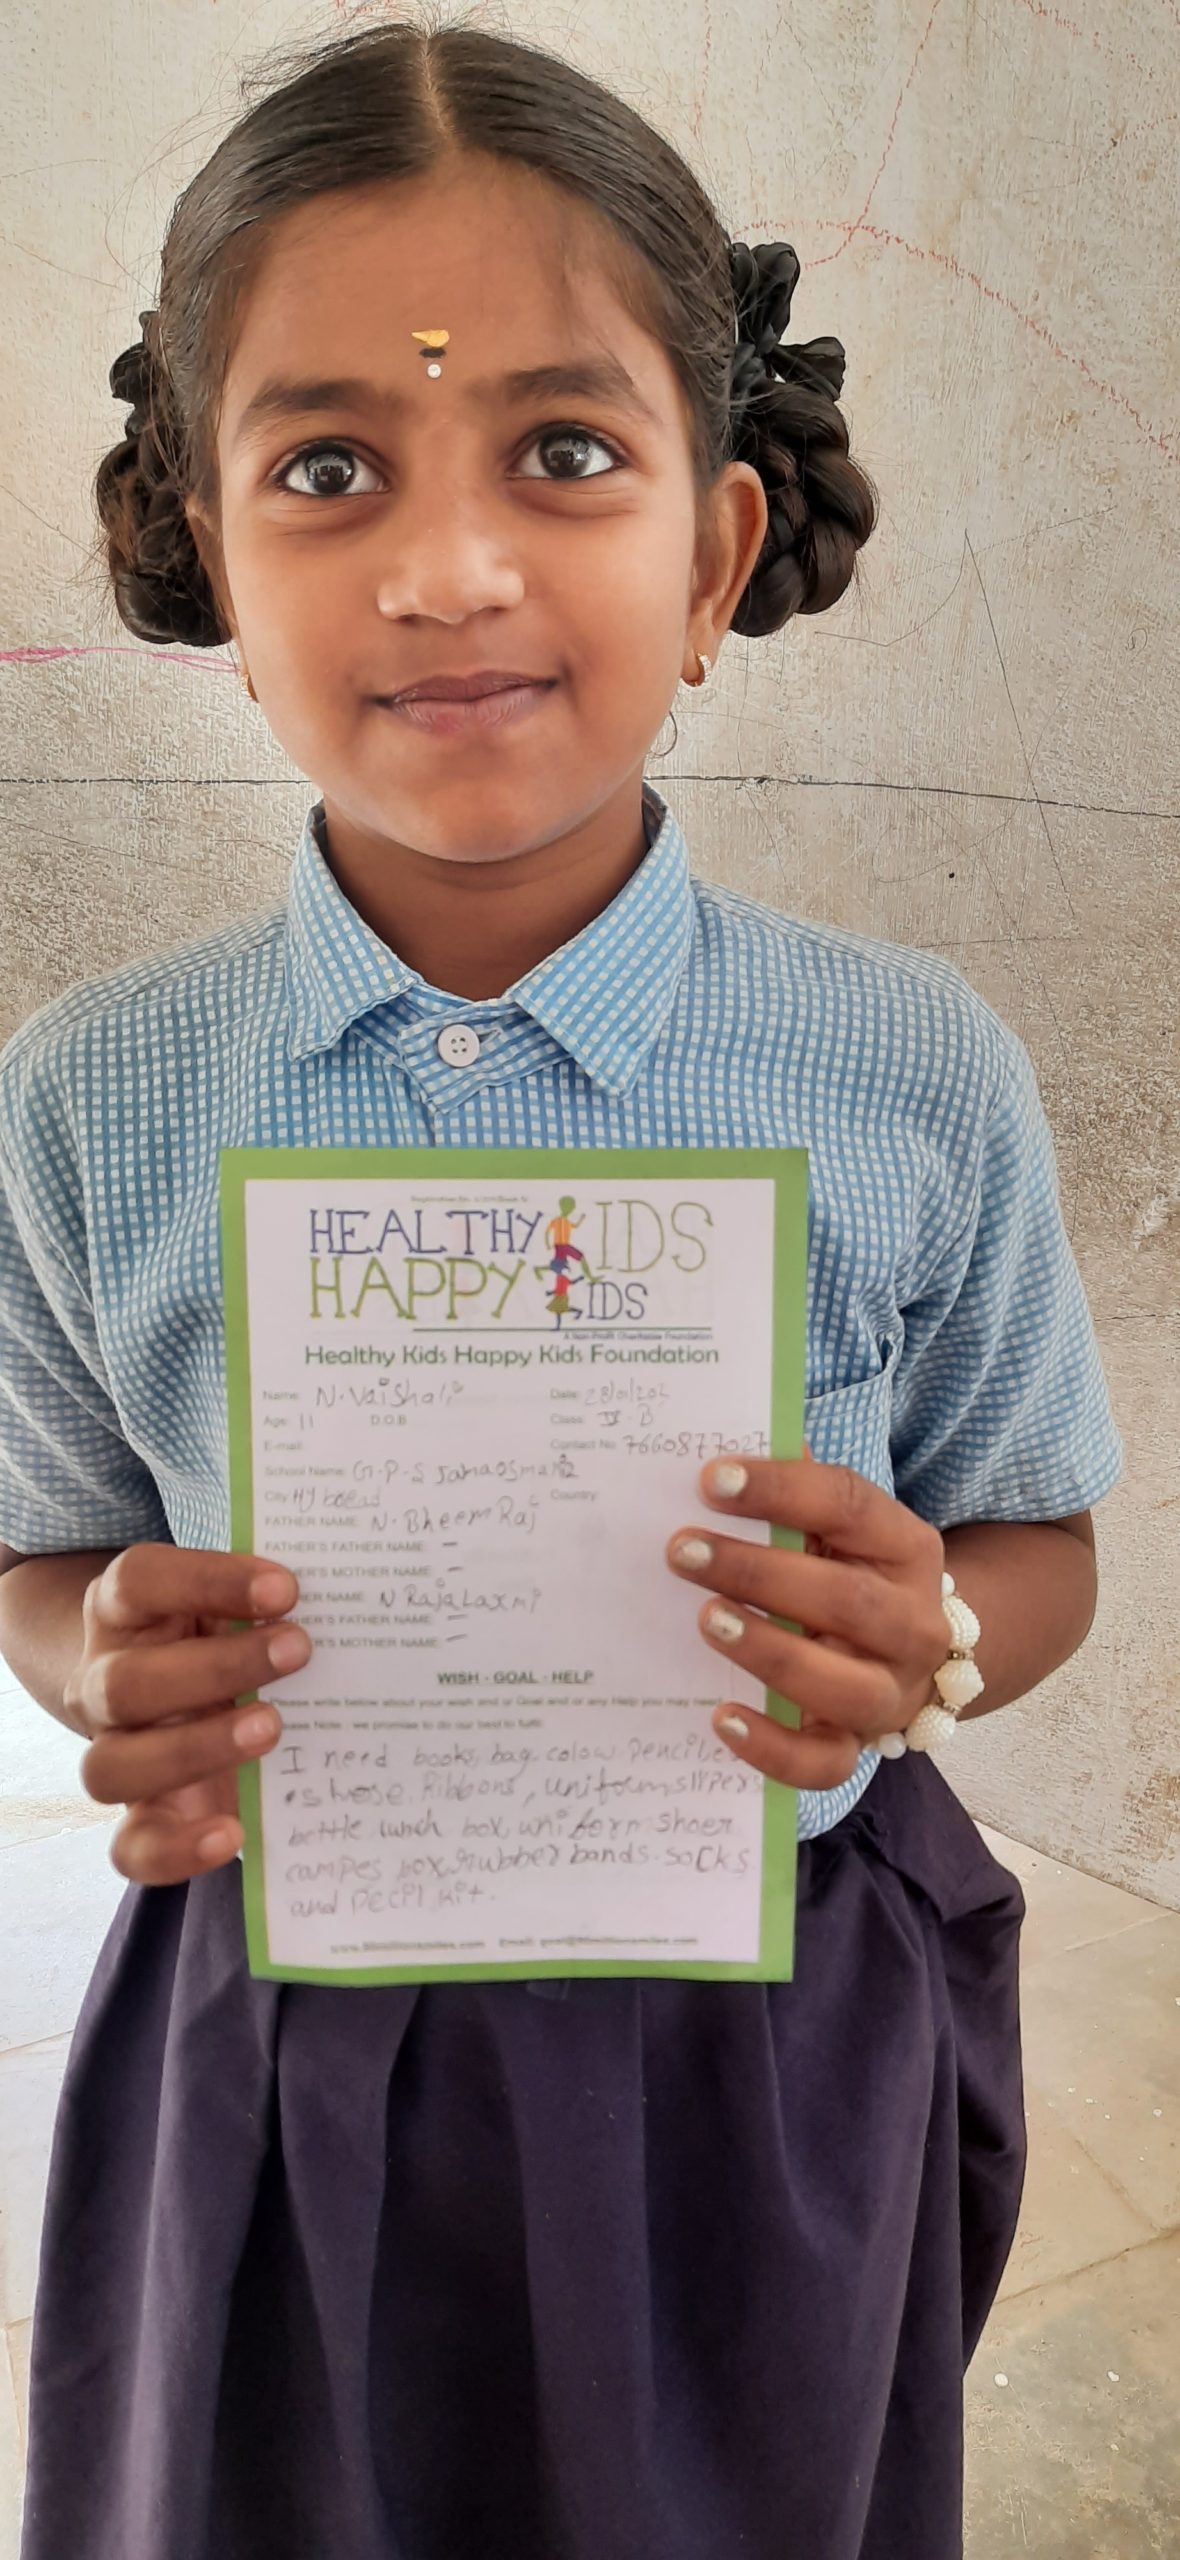 HEALTHY KIDS
HAPPY KIDS
A Non Profit Charitable Foundation
Healthy Kids Happy Kids Foundation
Name: N. Vaishali Date: 28/01/202
Age: 11 D.O.B Class: IV - B
E-mail: Contact No 7660877027
School Name: G.P.S
City Country:
FATHER NAME: N. Bheem Raj
FATHER'S FATHER NAME: -
HER'S MOTHER NAME: -
HER NAME: N RajaLaxmi
HER'S FATHER NAME: -
R'S MOTHER NAME: -
WISH - GOAL - HELP
Please write below about your wish and or Goal and or any Help you may need
ease Note : we promise to do our best to fulfil
I need books, bag, colour penciles
shose, Ribbons, uniform slipers
bottle, lunch box, uniform shoer
campes box, rubber bands. socks
and pecil kit.